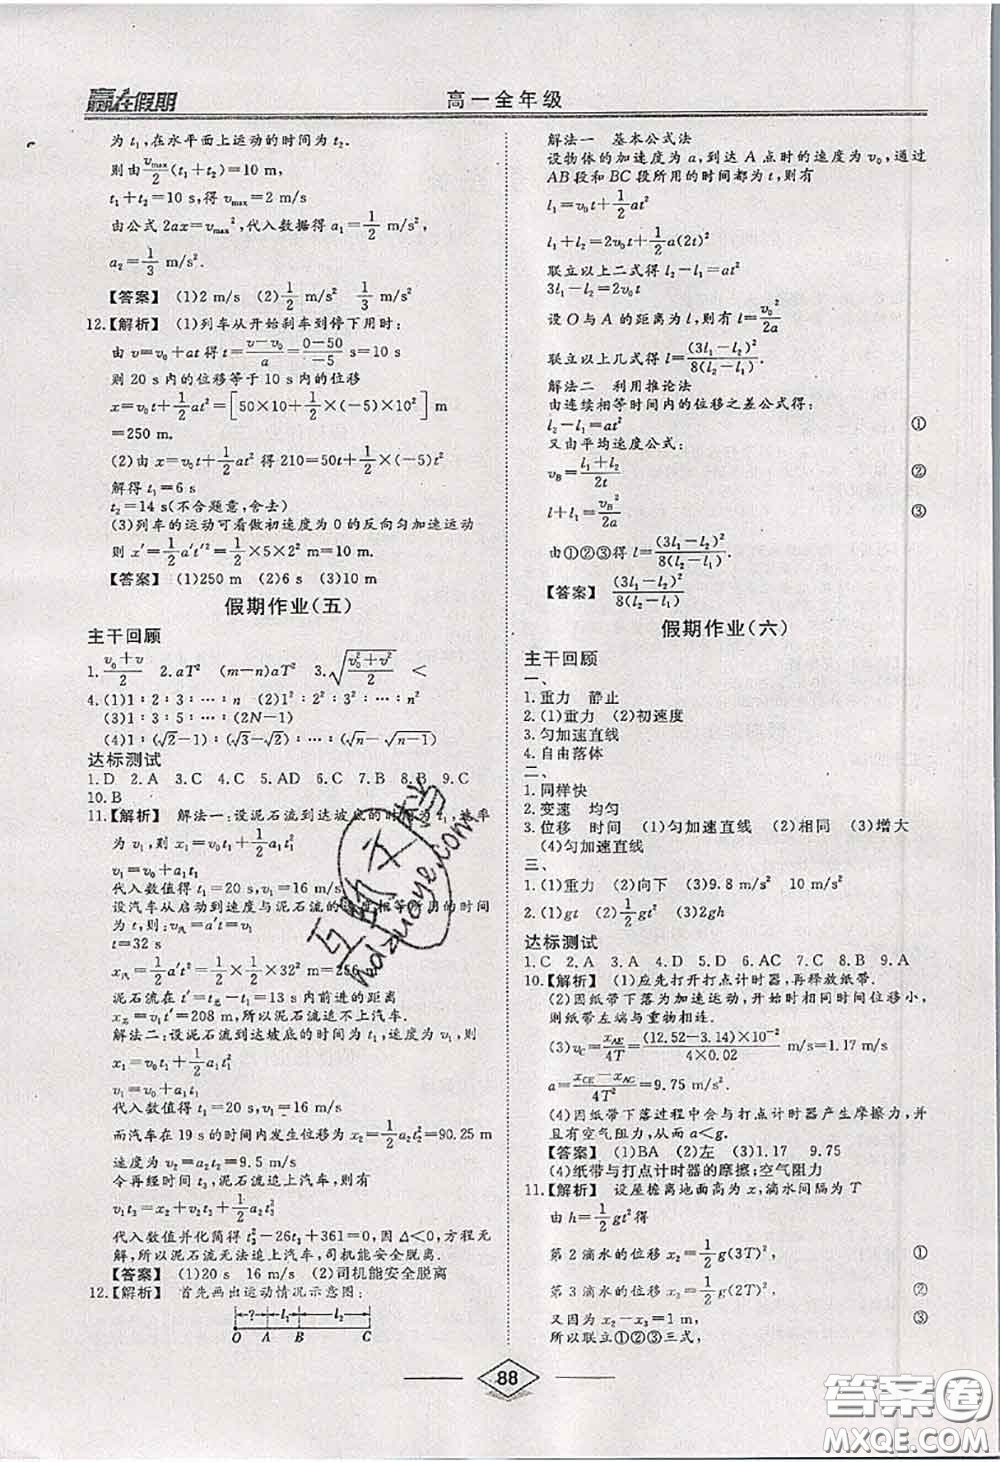 赢在假期
高一全年级
为 t₁,在水平面上运动的时间为 t₂.
则由 vmax/2 (t₁+t₂)=10 m,
t₁+t₂=10 s,得 vmax=2 m/s
由公式 2ax=vmax²,代入数据得 a₁=1/2 m/s²,
a₂=1/3 m/s².
【答案】 (1)2 m/s (2)1/2 m/s² 1/3 m/s²
12.【解析】 (1)列车从开始刹车到停下用时:
由 v=v₀+at 得 t=(v-v₀)/a=(0-50)/(-5) s=10 s
则 20 s 内的位移等于 10 s 内的位移
x=v₀t+1/2at²=[50×10+1/2×(-5)×10²] m
=250 m.
(2)由 x=v₀t+1/2at² 得 210=50t+1/2×(-5)t²
解得 t₁=6 s
t₂=14 s(不合题意,舍去)
(3)列车的运动可看做初速度为 0 的反向匀加速运动
则 x′=1/2a′t′²=1/2×5×2² m=10 m.
【答案】 (1)250 m (2)6 s (3)10 m
假期作业(五)
主干回顾
1.(v₀+v)/2 2.aT² (m-n)aT² 3.√((v₀²+v²)/2) <
4.(1)1∶2∶3∶…∶n (2)1²∶2²∶3²∶…∶n²
(3)1∶3∶5∶…∶(2N-1)
(4)1∶(√2-1)∶(√3-√2)∶…∶(√n-√(n-1))
达标测试
1.D 2.A 3.C 4.C 5.AD 6.C 7.B 8.B 9.C
10.B
11.【解析】 解法一:设泥石流到达坡底的时间为 t₁,速率
为 v₁,则 x₁=v₀t₁+1/2a₁t₁²
v₁=v₀+a₁t₁
代入数值得 t₁=20 s,v₁=16 m/s
设汽车从启动到速度与泥石流的速度相等所用的时间
为 t,则:v汽=a′t=v₁
t=32 s
x汽=1/2a′t²=1/2×1/2×32² m=256
泥石流在 t′=t总-t₁=13 s 内前进的距离
x泥=v₁t′=208 m,所以泥石流追不上汽车.
解法二:设泥石流到达坡底的时间为 t₁,速度为 v₁,则
x₁=v₀t₁+1/2a₁t₁²
v₁=v₀+a₁t₁
代入数值得 t₁=20 s,v₁=16 m/s
而汽车在 19 s 的时间内发生位移为 x₂=1/2a₂t₂²=90.25 m
速度为 v₂=a₂t₂=9.5 m/s
令再经时间 t₃,泥石流追上汽车,则有
v₁t₃=x₂+v₂t₃+1/2a₂t₃²
代入数值并化简得 t₃²-26t₃+361=0,因 Δ<0,方程无
解,所以泥石流无法追上汽车,司机能安全脱离.
【答案】 (1)20 s 16 m/s (2)司机能安全脱离
12.【解析】 首先画出运动情况示意图:
? l₁ l₂
O A B C
解法一 基本公式法
设物体的加速度为 a,到达 A 点时的速度为 v₀,通过
AB 段和 BC 段所用的时间都为 t,则有
l₁=v₀t+1/2at²
l₁+l₂=2v₀t+1/2a(2t)²
联立以上二式得 l₂-l₁=at²
3l₁-l₂=2v₀t
设 O 与 A 的距离为 l,则有 l=v₀²/2a
联立以上几式得 l=(3l₁-l₂)²/8(l₂-l₁)
解法二 利用推论法
由连续相等时间内的位移之差公式得:
l₂-l₁=at² ①
又由平均速度公式:
vB=(l₁+l₂)/2t ②
l+l₁=vB²/2a ③
由①②③得 l=(3l₁-l₂)²/8(l₂-l₁)
【答案】 (3l₁-l₂)²/8(l₂-l₁)
假期作业(六)
主干回顾
一、
1.重力 静止
2.(1)重力 (2)初速度
3.匀加速直线
4.自由落体
二、
1.同样快
2.变速 均匀
3.位移 时间 (1)匀加速直线 (2)相同 (3)增大
(4)匀加速直线
三、
1.(1)重力 (2)向下 (3)9.8 m/s² 10 m/s²
2.(1)gt (2)1/2gt² (3)2gh
达标测试
1.C 2.A 3.A 4.D 5.D 6.AC 7.C 8.B 9.A
10.【解析】 (1)应先打开打点计时器,再释放纸带.
(2)因纸带下落为加速运动,开始时相同时间位移小,
则纸带左端与重物相连.
(3)vC=xAE/4T=(12.52-3.14)×10⁻²/(4×0.02) m/s=1.17 m/s
a=(xCE-xAC)/4T²=9.75 m/s².
(4)因纸带下落过程中会与打点计时器产生摩擦力,并
且有空气阻力,从而 a<g.
【答案】 (1)BA (2)左 (3)1.17 9.75
(4)纸带与打点计时器的摩擦;空气阻力
11.【解析】 设屋檐离地面高为 x,滴水间隔为 T
由 h=1/2gt²得
第 2 滴水的位移 x₂=1/2g(3T)², ①
第 3 滴水的位移 x₃=1/2g(2T)², ②
又因为 x₂-x₃=1 m, ③
所以联立①②③三式,
88
互助文库
hdzuoye.com
答案圈
MXQE.COM